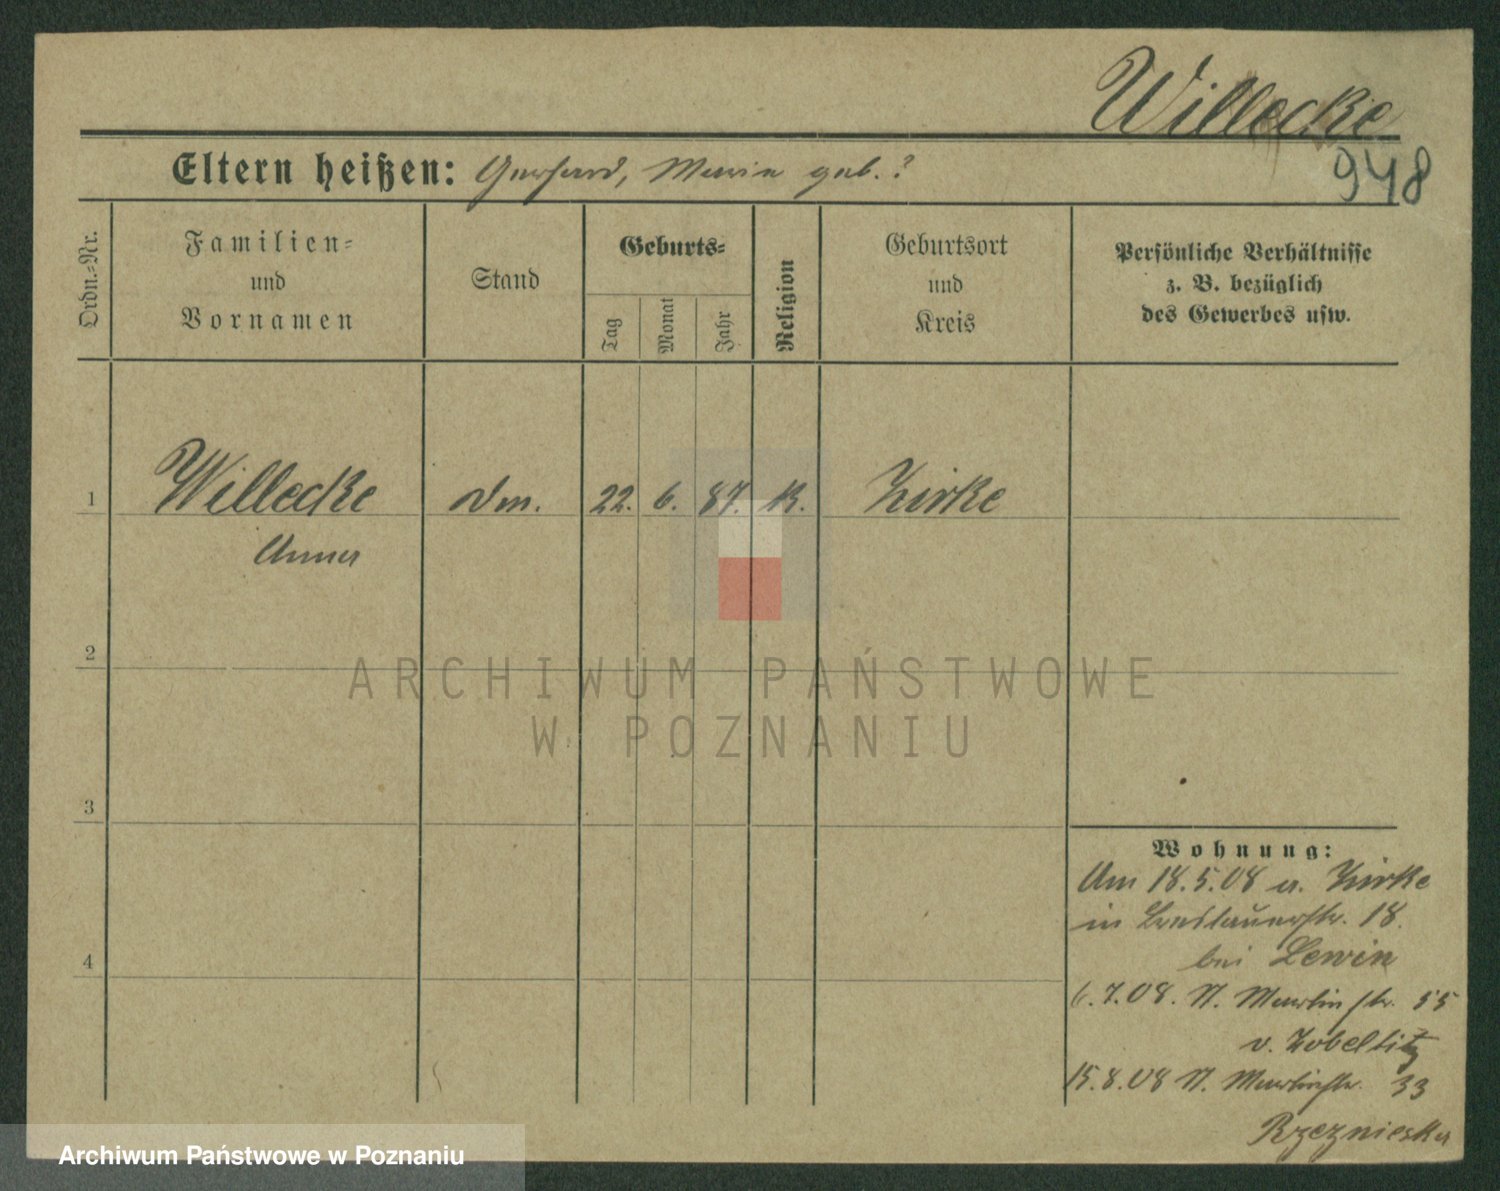 Willecke
948
Eltern heißen: Gerhard, Marie geb. ?
Ordn.-Nr.
Familien-
und
Vornamen
Stand
Geburts-
Tag
Monat
Jahr
Religion
Geburtsort
und
Kreis
Persönliche Verhältnisse
z. B. bezüglich
des Gewerbes usw.
1 Willecke Dm. 22. 6. 87. K. Zirke
Anna
2
3
4
ARCHIWUM PAŃSTWOWE
W POZNANIU
Wohnung:
Am 18.5.08 a. Zirke
in Breslauerstr. 18.
bei Lewin
6.7.08. St. Martinstr. 55
v. Zobeltitz
15.8.08 St. Martinstr. 33
Rzeznieska
Archiwum Państwowe w Poznaniu